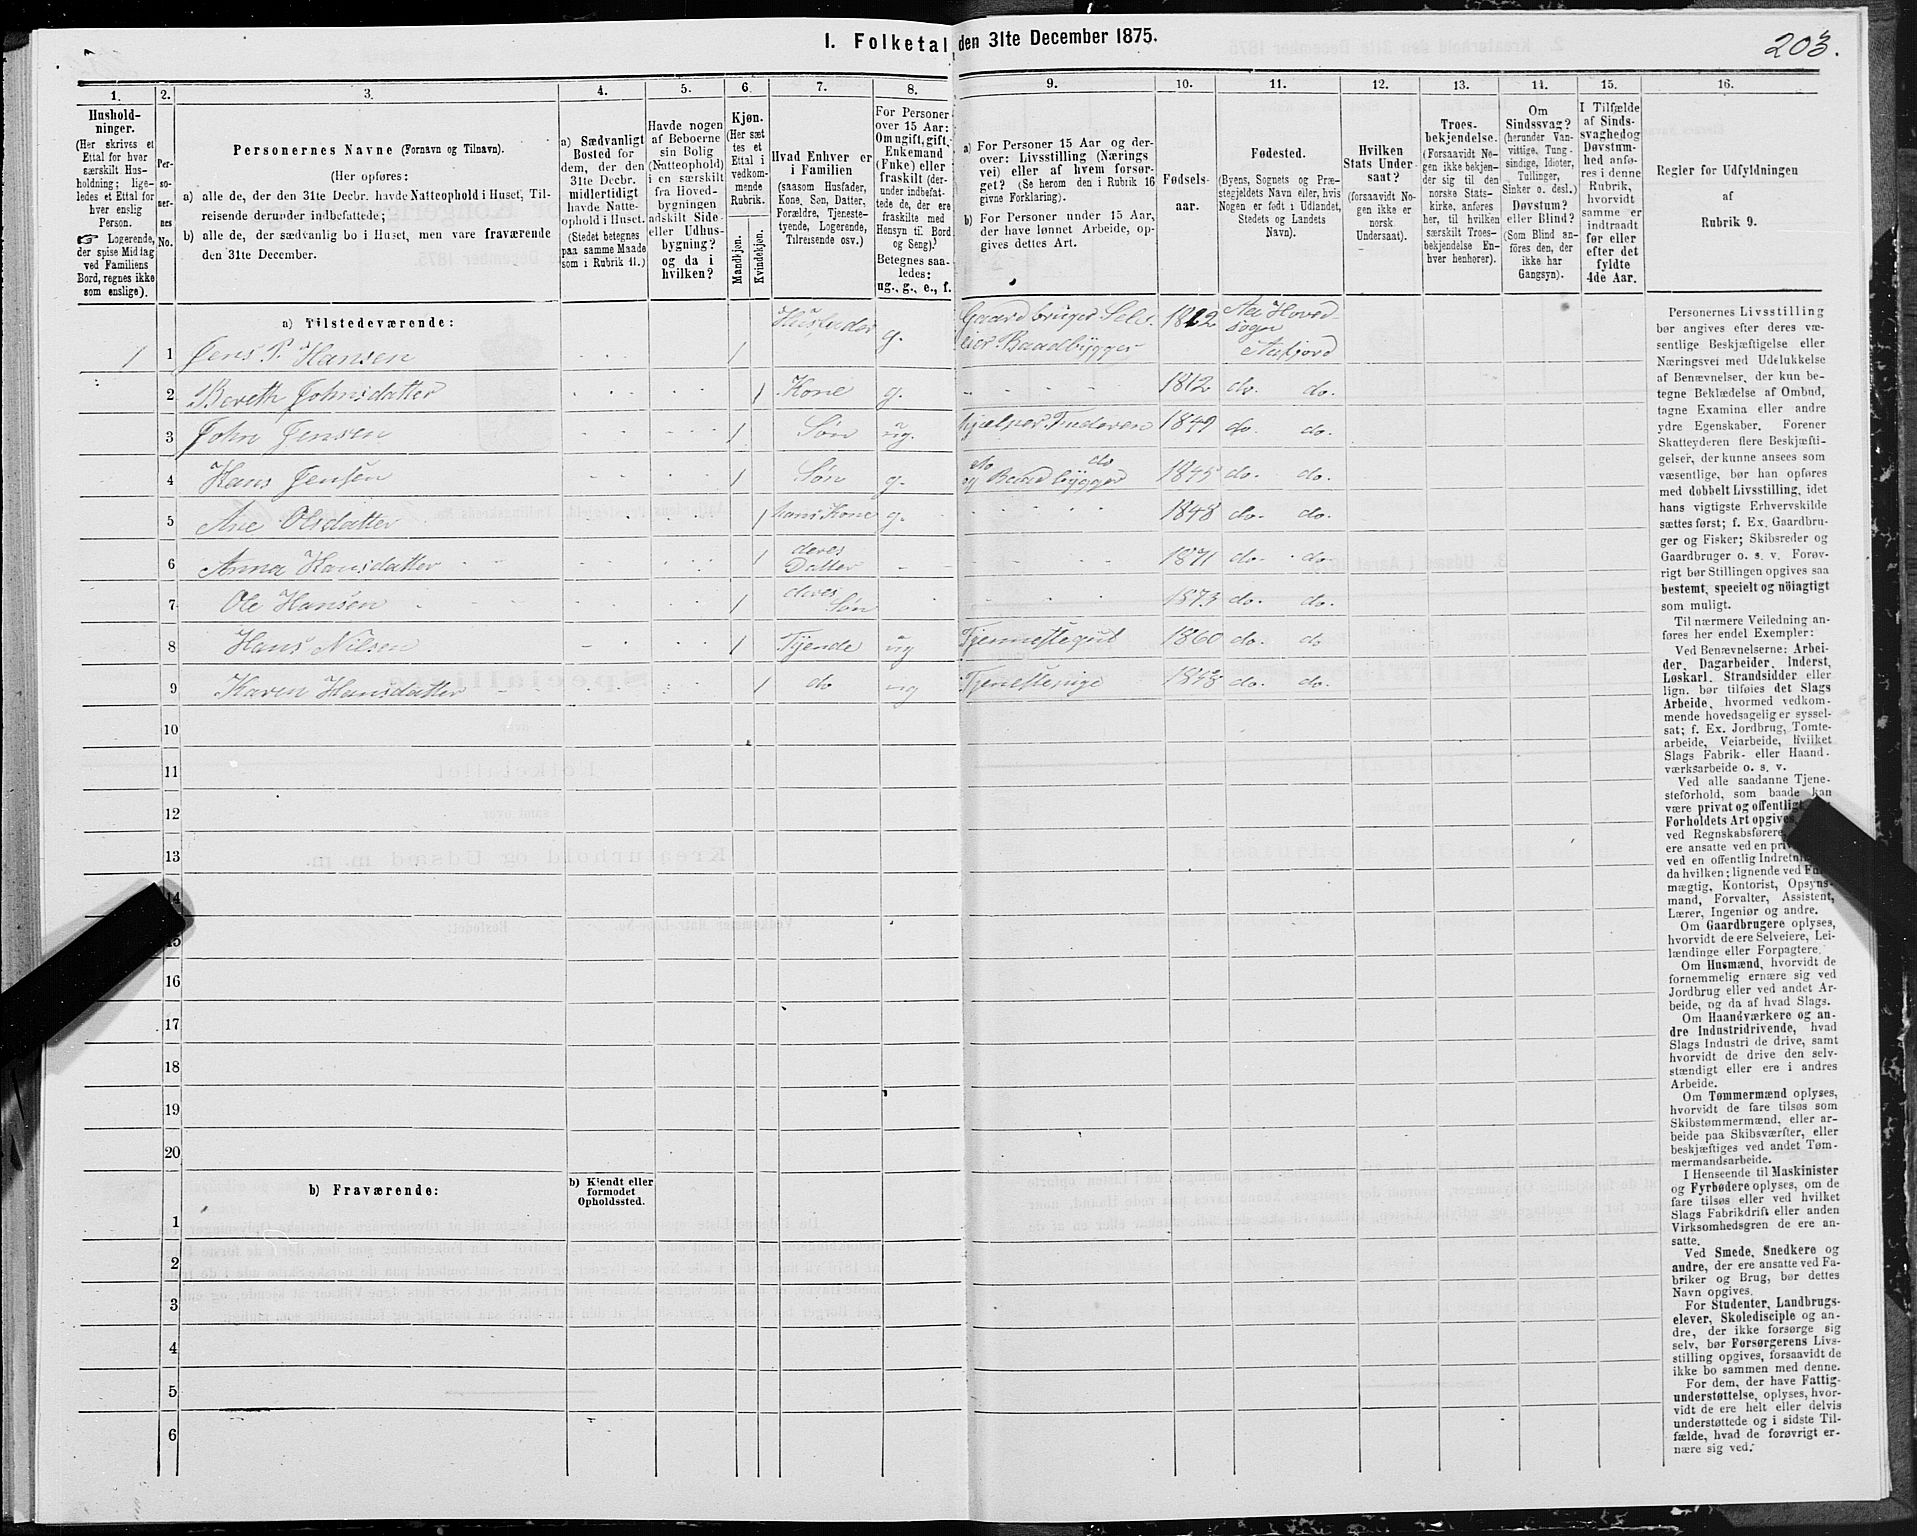 I. Folketal den 31te December 1875.
203.
1.
Hushold-
ninger.
(Her skrives et
Ettal for hver
særskilt Hus-
holdning; lige-
ledes et Ettal for
hver enslig
Person.
☞ Logerende,
der spise Middag
ved Familiens
Bord, regnes ikke
som enslige).
2.
Per-
so-
ner-
nes
No.
3.
Personernes Navne (Fornavn og Tilnavn).
(Her opføres:
a) alle de, der den 31te Decbr. havde Natteophold i Huset, Til-
reisende derunder indbefattede;
b) alle de, der sædvanlig bo i Huset, men vare fraværende
den 31te December.
4.
a) Sædvanligt
Bosted for
dem, der den
31te Decbr.
midlertidigt
havde Natte-
ophold i Huset.
(Stedet betegnes
paa samme Maade
som i Rubrik 11.)
5.
Havde nogen
af Beboerne
sin Bolig
(Natteophold)
i en særskilt
fra Hoved-
bygningen
adskilt Side-
eller Udhus-
bygning?
og da i
hvilken?
6.
Kjøn.
(Her sæt
tes et
Ettal i
vedkom-
mende
Rubrik.
Mandkjøn.
Kvindekjøn.
7.
Hvad Enhver er
i Familien
(saasom Husfader,
Kone, Søn, Datter,
Forældre, Tjeneste-
tyende, Logerende,
Tilreisende osv.)
8.
For Personer
over 15 Aar:
Om ugift, gift,
Enkemand
(Enke) eller
fraskilt (der-
under indbefat-
tede de, der ere
fraskilte med
Hensyn til Bord
og Seng).
Betegnes saa-
ledes:
ug., g., e., f.
9.
a) For Personer 15 Aar og der-
over: Livsstilling (Nærings
vei) eller af hvem forsør-
get? (Se herom den i Rubrik 16
givne Forklaring).
b) For Personer under 15 Aar,
der have lønnet Arbeide, op-
gives dettes Art.
10.
Fødsels-
aar.
11.
Fødested.
(Byens, Sognets og Præ-
stegjeldets Navn eller, hvis
Nogen er født i Udlandet,
Stedets og Landets
Navn).
12.
Hvilken
Stats Under-
saat?
(forsaavidt No-
gen ikke er
norsk
Undersaat).
13.
Troes-
bekjendelse.
(Forsaavidt No-
gen ikke bekjen-
der sig til den
norske Stats-
kirke, anføres
her, til hvilken
særskilt Troes-
bekjendelse En-
hver henhører).
14.
Om
Sindssvag?
(herunder Van-
vittige, Tung-
sindige, Idioter,
Tullinger,
Sinker o. desl.)
Døvstum?
eller Blind?
(Som Blind an-
føres den, der
ikke har
Gangsyn).
15.
I Tilfælde
af Sinds-
svaghed og
Døvstum-
hed anfø-
res i denne
Rubrik,
hvorvidt
samme er
indtraadt
før eller
efter det
fyldte
4de Aar.
16.
Regler for Udfyldningen
af
Rubrik 9.
a) Tilstedeværende:
1 1 Jens P. Hansen 1 Husfader g. Gaardbruger Selv-
eier Baadbygger 1812 Aa Hoved
sogn
Aafjord
2 Bereth Johnsdatter 1 Kone g. 1812 do. do.
3 John Jensen 1 Søn ug. hjælper Faderen 1849 do. do.
4 Hans Jensen 1 Søn g. do do
og Baadbygger 1845 do. do.
5 Ane Olsdatter 1 hans Kone g. 1848 do. do.
6 Anna Hansdatter 1 deres
Datter 1871 do. do.
7 Ole Hansen 1 deres
Søn 1873 do. do.
8 Hans Nilsen 1 Tjende ug Tjennestegut 1860 do. do
9 Karen Hansdatter 1 do ug Tjenestepige do. do.
10
11
12
13
14
15
16
17
18
19
20
b) Fraværende:
b) Kjendt eller
formodet
Opholdssted.
1
2
3
4
5
6
Personernes Livsstilling
bør angives efter deres væ-
sentlige Beskjæftigelse eller
Næringsvei med Udelukkelse
af Benævnelser, der kun be-
tegne Beklædelse af Ombud,
tagne Examina eller andre
ydre Egenskaber. Forener
Skatteyderen flere Beskjæfti-
gelser, der kunne ansees som
væsentlige, bør han opføres
med dobbelt Livsstilling, idet
hans vigtigste Erhvervskilde
sættes først; f. Ex. Gaardbru-
ger og Fisker; Skibsreder og
Gaardbruger o. s. v. Forøv-
rigt bør Stillingen opgives saa
bestemt, specielt og nøiagtigt
som muligt.
Til nærmere Veiledning an-
føres her endel Exempler:
Ved Benævnelserne: Arbei-
der, Dagarbeider, Inderst,
Løskarl, Strandsidder eller
lign. bør tilføies det Slags
Arbeide, hvormed vedkom-
mende hovedsagelig er syssel-
sat; f. Ex. Jordbrug, Tomte-
arbeide, Veiarbeide, hvilket
Slags Fabrik- eller Haand-
værksarbeide o. s. v.
Ved alle saadanne Tjene-
steforhold, som baade kan
være privat og offentligt,
Forholdets Art opgives,
ved Regnskabsførere,
ere ansatte ved en
ved en offentlig
da hvilken; lignende ved
mægtig, Kontorist, Opsyns-
mand, Forvalter, Assistent,
Lærer, Ingeniør og andre.
Om Gaardbrugere oplyses,
hvorvidt de ere Selveiere, Lei-
lændinge eller Forpagtere
Om Husmænd, hvorvidt de
fornemmelig ernære sig ved
Jordbrug eller ved andet Ar-
beide, og da af hvad Slags.
Om Haandværkere og an-
dre Industridrivende, hvad
Slags Industri de drive, samt
hvorvidt de drive den selv-
stændigt eller ere i andres
Arbeide.
Om Tømmermænd oplyses,
hvorvidt de fare tilsøs som
Skibstømmermænd, eller ar-
beide paa Skibsværfter, eller
beskjæftiges ved andet Tøm-
mermandsarbeide.
I Henseende til Maskinister
og Fyrbødere oplyses, om de
fare tilsøs eller ved hvilket
Slags Fabrikdrift eller anden
Virksomhedsgren de ere an-
satte.
Ved Smede, Snedkere og
andre, der ere ansatte ved Fa-
briker og Brug, bør dettes
Navn opgives.
For Studenter, Landbrugs-
elever, Skoledisciple og an-
dre, der ikke forsørge sig
selv, bør Forsørgerens Livs-
stilling opgives, forsaavidt de
ikke bo sammen med denne.
For dem, der have Fattig-
understøttelse, oplyses, hvor-
vidt de ere helt eller delvis
understøttede og i sidste Til-
fælde, hvad de forøvrigt er-
nære sig ved.